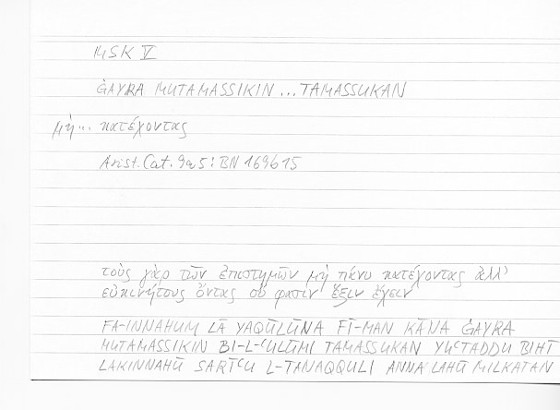 MSK V
ĠAYRA MUTAMASSIKIN ... TAMASSUKAN
μὴ ... κατέχοντας
Arist. Cat. 9a5 : BN 169b15
τοὺς γὰρ τῶν ἐπιστημῶν μὴ πάνυ κατέχοντας ἀλλ'
εὐκινήτους ὄντας οὔ φασιν ἕξιν ἔχειν
FA-INNAHUM LĀ YAQŪLŪNA FĪ-MAN KĀNA ĠAYRA
MUTAMASSIKIN BI-L-ʿULŪMI TAMASSUKAN YUʿTADDU BIHĪ
LAKINNAHŪ SARĪʿU L-TANAQQULI ANNA LAHŪ MILKATAN